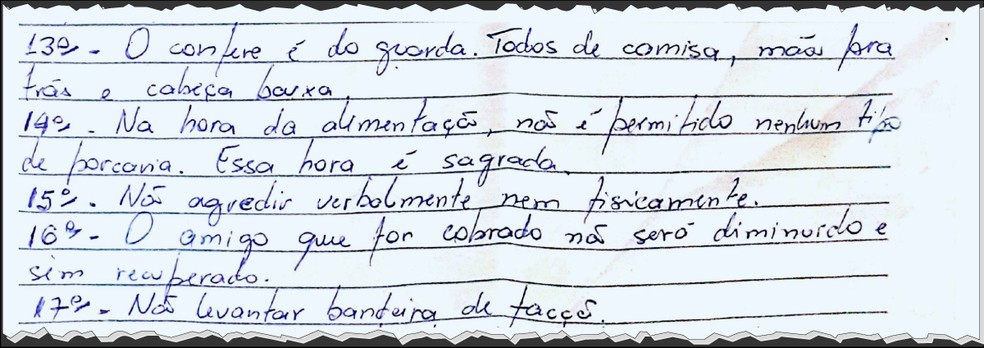 13º- O confere é do guarda. Todos de camisa, mão para
trás e cabeça baixa.
14º- Na hora da alimentação, não é permitido nenhum tipo
de porcaria. Essa hora é sagrada.
15º- Não agredir verbalmente nem fisicamente.
16º- O amigo que for cobrado não será diminuido e
sim recuperado.
17º- Não levantar bandeira de facçõ.